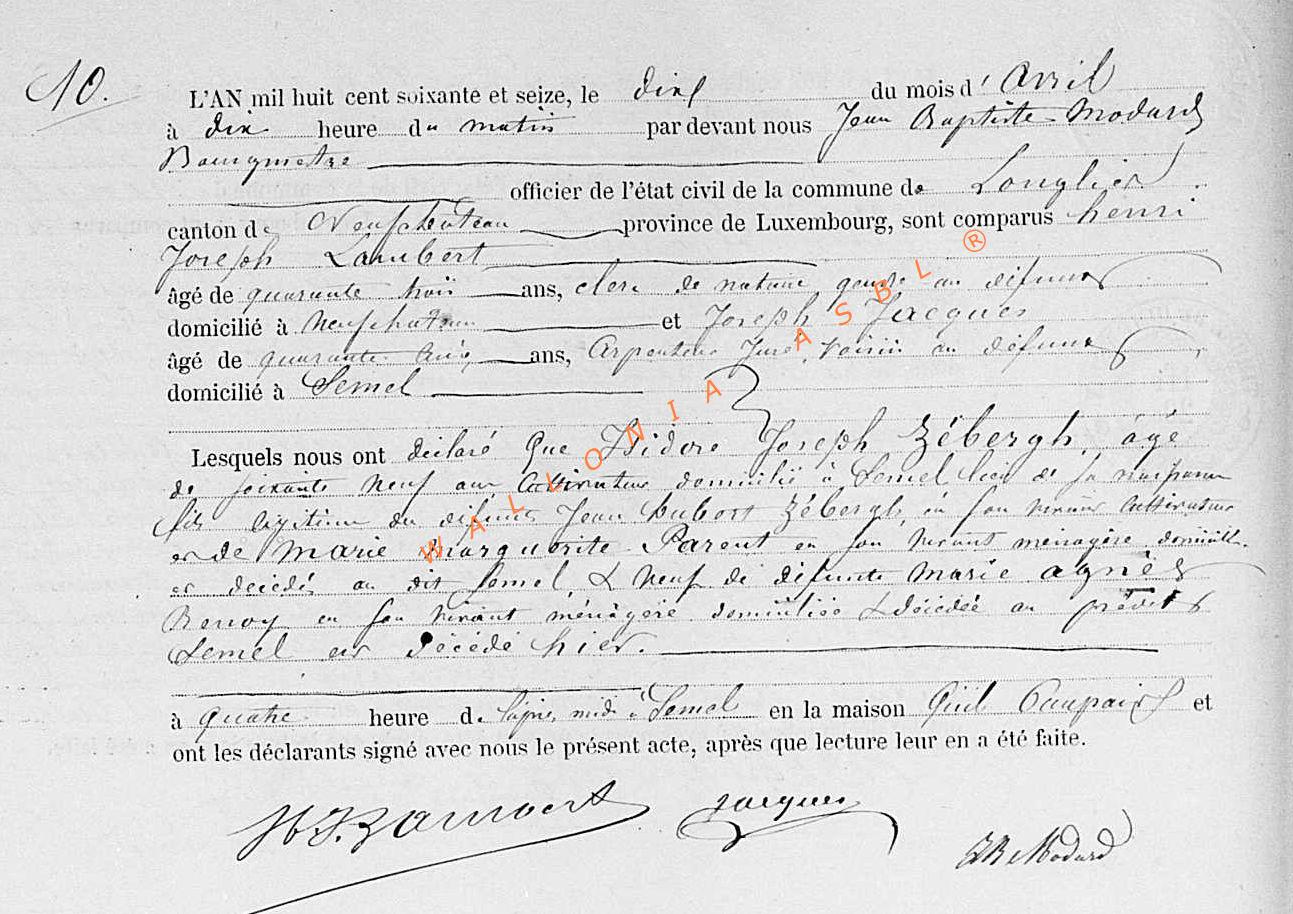 10.
L'AN mil huit cent soixante et seize, le dix du mois d'Avril
à dix heure du matin par devant nous Jean Baptiste Modard
Bourgmetre
officier de l'état civil de la commune de Longlier
canton de Neufchateau province de Luxembourg, sont comparus henri
Joseph Lambert
âgé de quarante trois ans, clerc de notaire, gendre au défunt
domicilié à Neufchateau et Joseph Jacques
âgé de quarante cinq ans, Arpenteur Juré, voisin au défunt
domicilié à Semel
Lesquels nous ont déclaré que Isidore Joseph Zébergh, agé
de soixante neuf ans Cultivateur domicilié à Semel lieu de sa naissance
fils légitime du défunt Jean hubert Zébergh, en son vivant Cultivateur
et de Marie Marguerite Parent en son vivant ménagère domicil-
et décédés au dit Semel, & veuf de défunte Marie agnès
Renoy en son vivant ménagère domiciliée & décédée au prédit
Semel est décédé hier.
à quatre heure de l'après midi à Semel en la maison qu'il occupait et
ont les déclarants signé avec nous le présent acte, après que lecture leur en a été faite.
HJLambert Jacques
JB Modard
WALLONIA ASBL ®